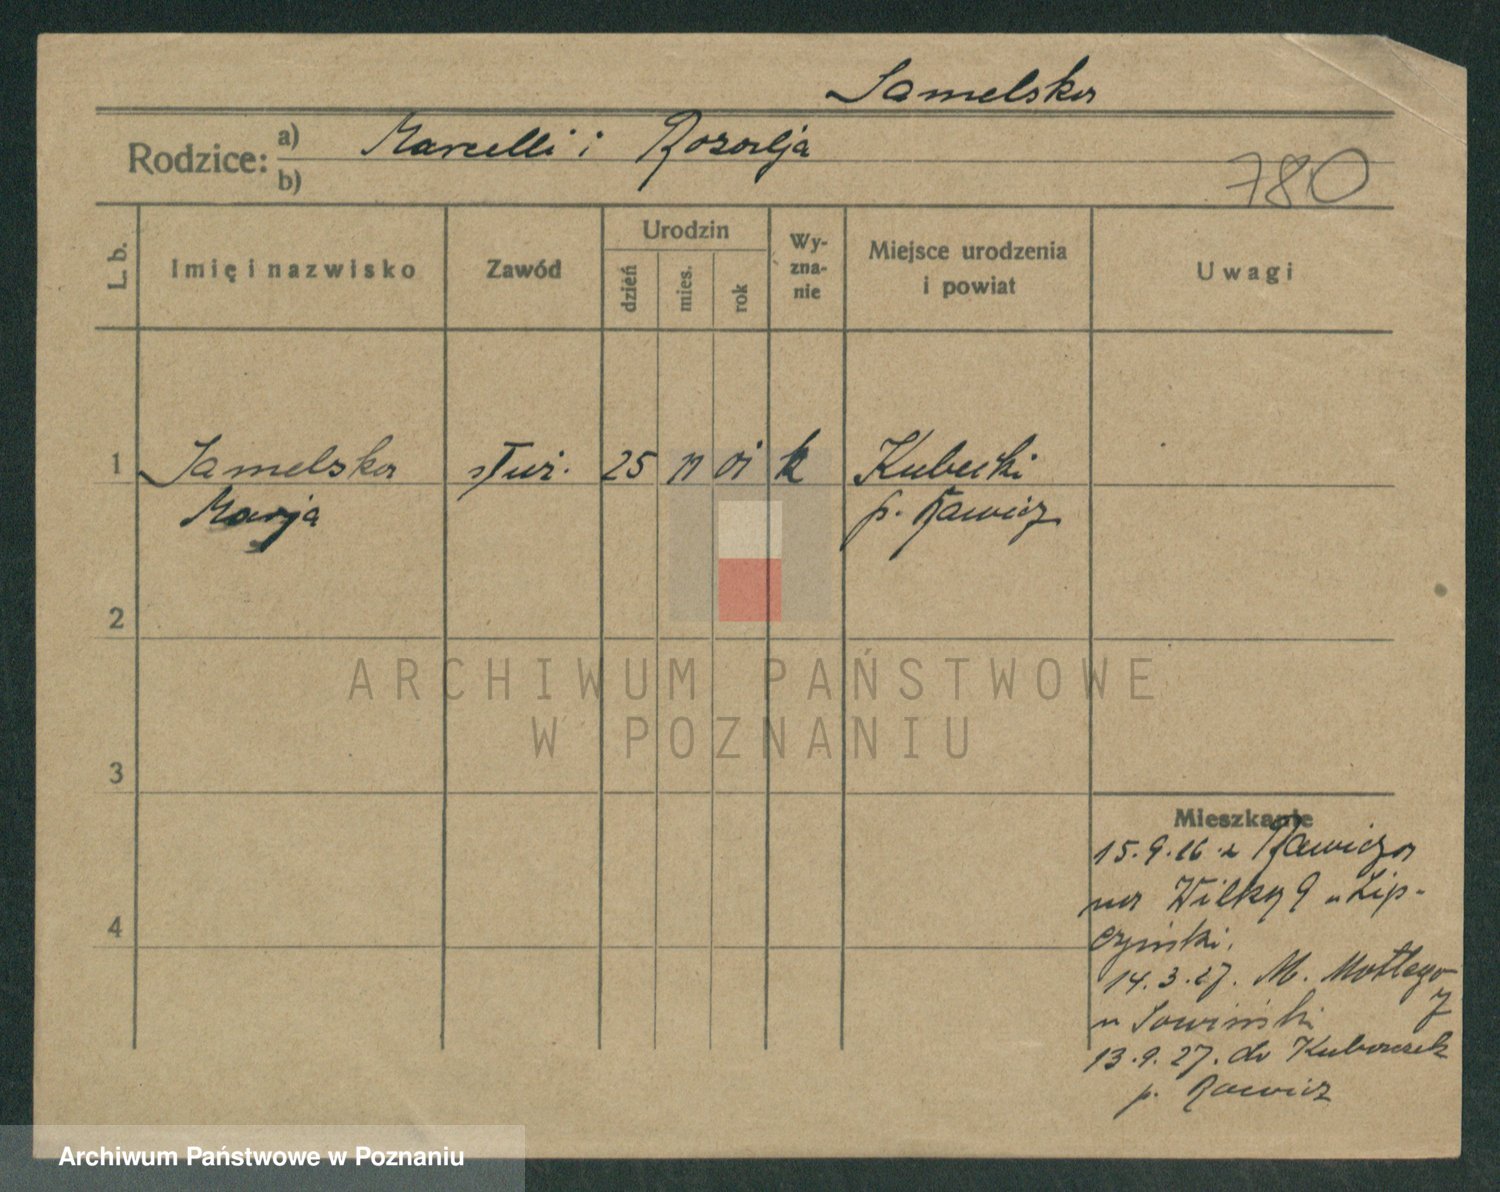 Samelska
Rodzice: a) Marcelli i Rozalja
b)
780
L. b.
Imię i nazwisko
Zawód
Urodzin
dzień
mies.
rok
Wy-
zna-
nie
Miejsce urodzenia
i powiat
Uwagi
1 Samelska służ. 25 11 01 k Kubeczki
Marja p. Rawicz
2
3
4
ARCHIWUM PAŃSTWOWE
W POZNANIU
Mieszkanie
15.9.26 z Rawicza
na Wilky 9 u Lip-
czyński.
14.3.27. M. Mottego
7
u Sowiński
13.9.27. do
p. Rawicz
Archiwum Państwowe w Poznaniu